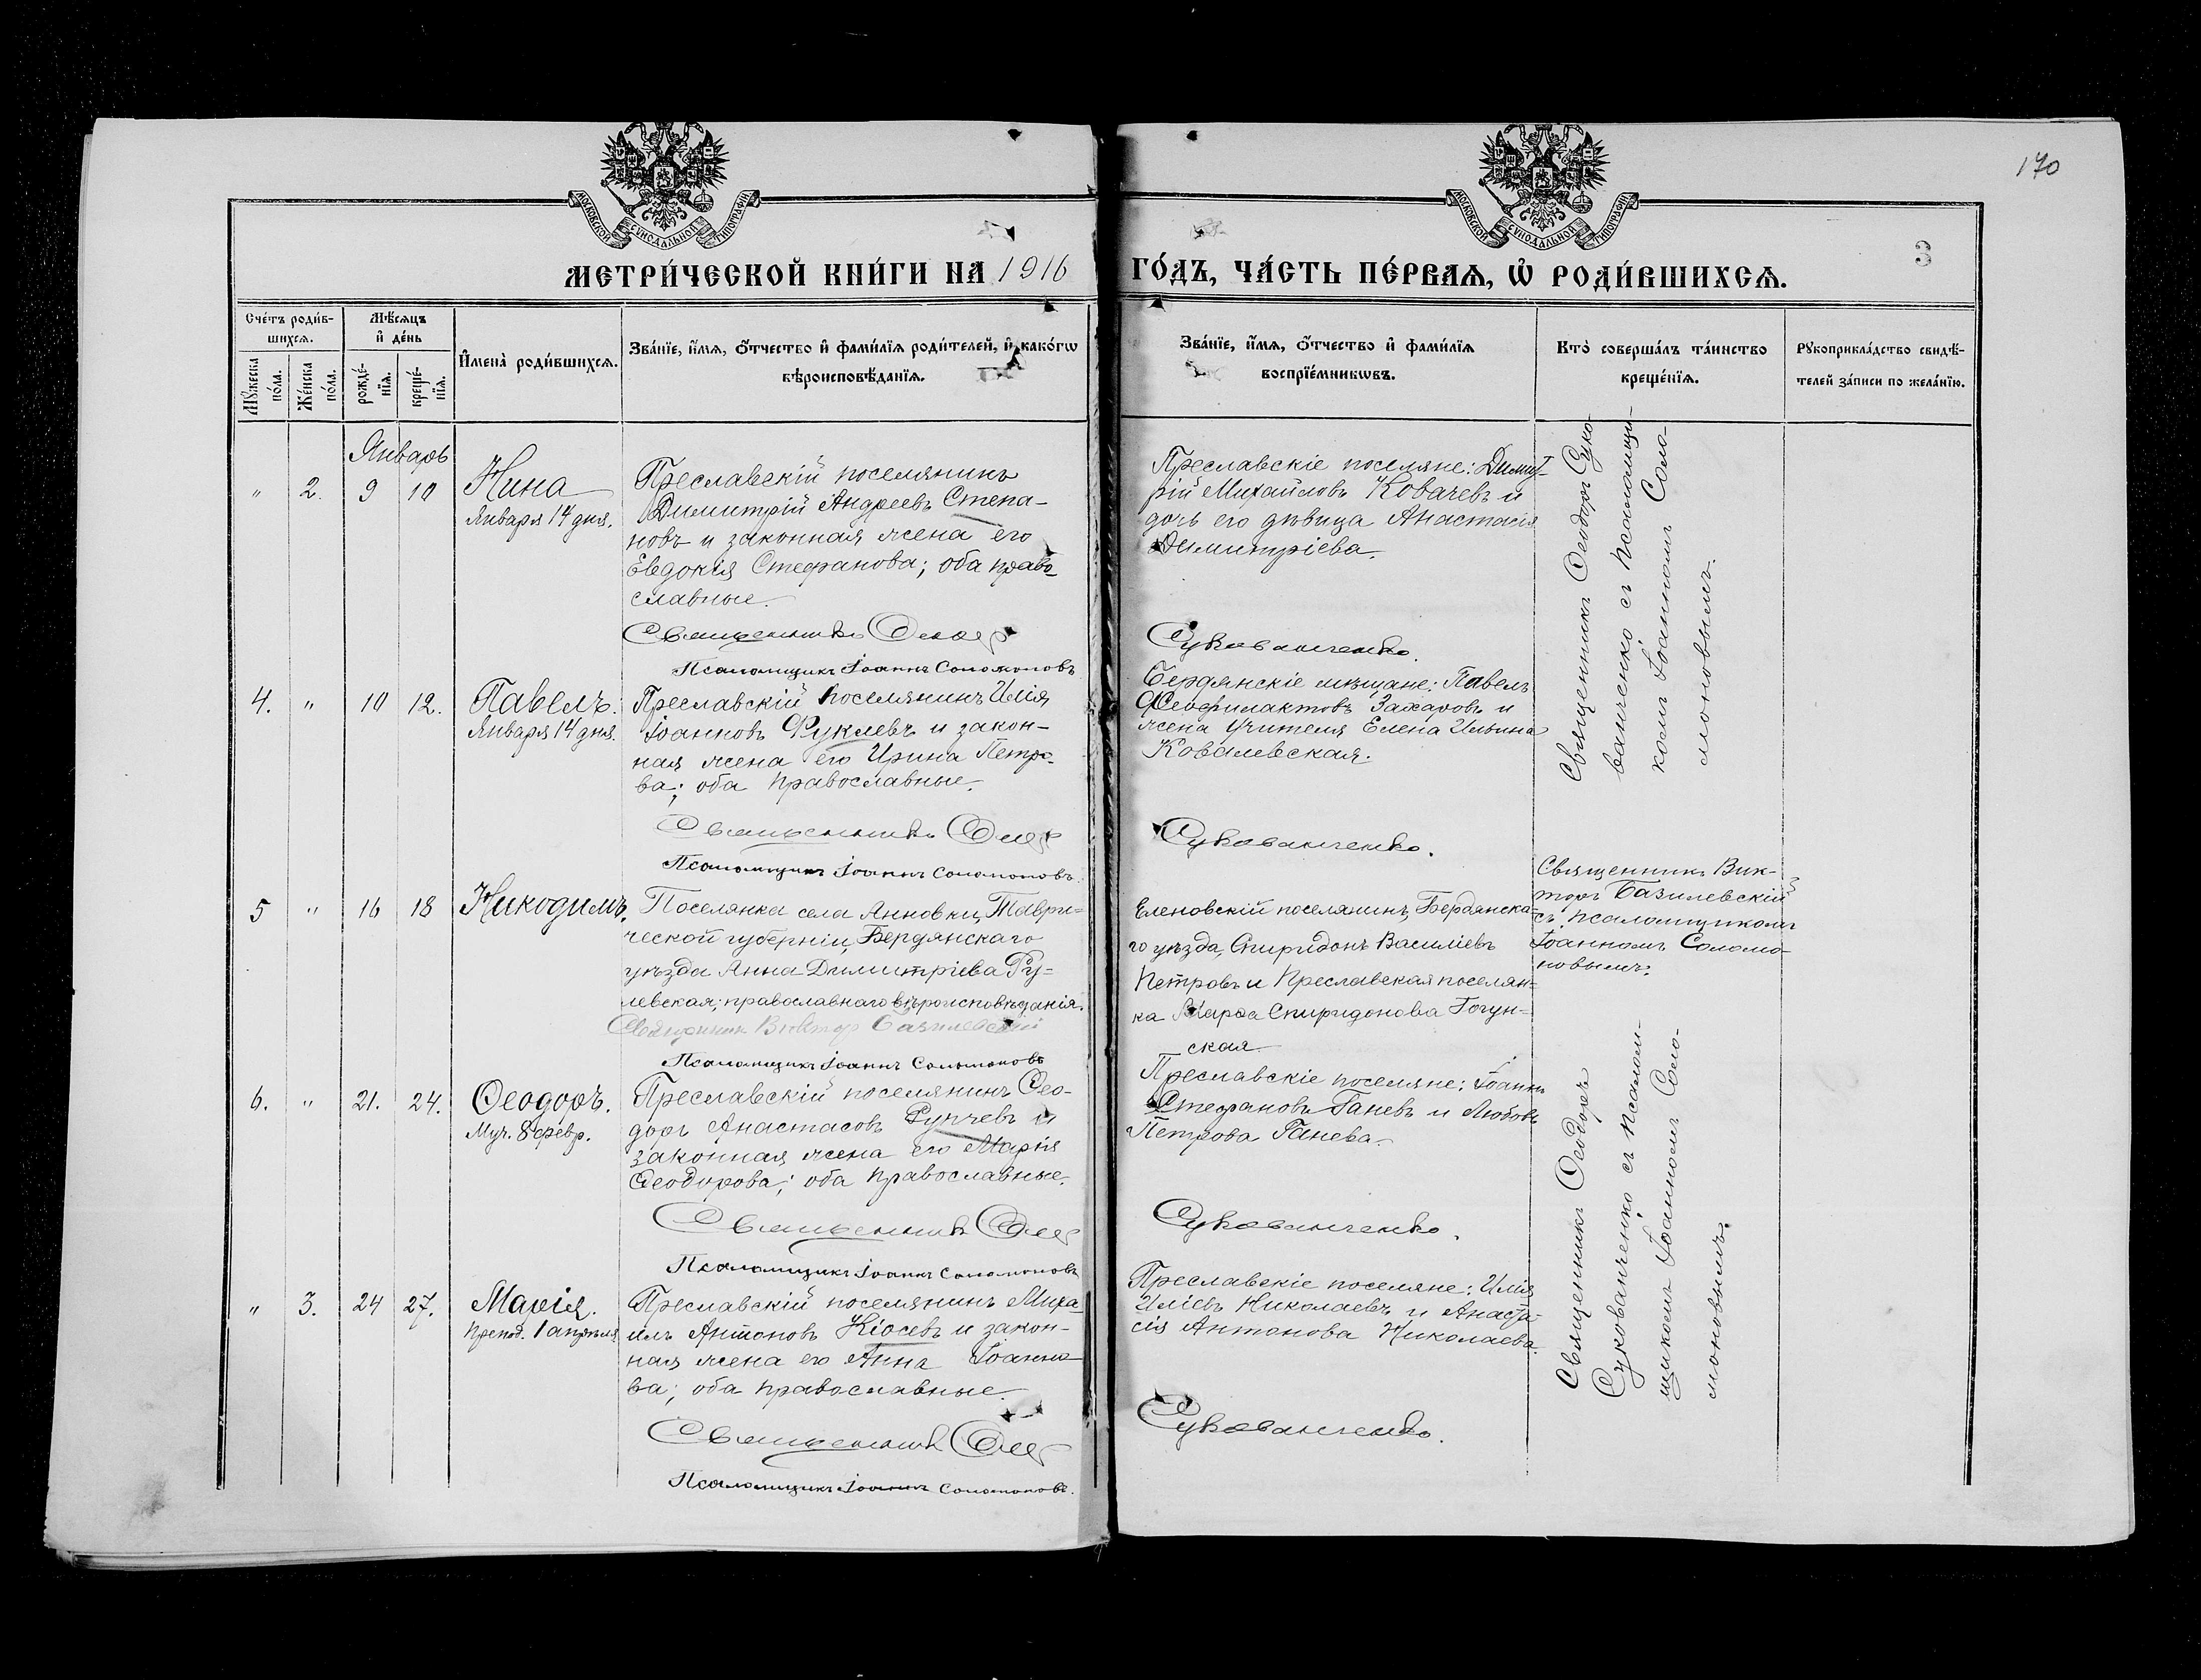 170
3
МОСКОВСКОЙ СѴНОДАЛЬНОЙ ТИПОГРАФІИ
МОСКОВСКОЙ СѴНОДАЛЬНОЙ ТИПОГРАФІИ
МЕТРИ́ЧЕСКОЙ КНИ́ГИ НА 1916
ГО́ДЪ, ЧА́СТЬ ПЕ́РВАѦ, Ѿ РОДИ́ВШИХСѦ.
Сче́тъ роди́в-
шихсѧ.
Мꙋ́жеска по́ла.
Же́нска по́ла.
Мѣ́сѧцъ
и҆ де́нь
рожде́-
нїѧ.
креще́-
нїѧ.
И҆мена̀ роди́вшихсѧ.
Зва́нїе, и҆́мѧ, ѻ҆́тчество и҆ фами́лїѧ роди́телей, и҆ како́гѡ
вѣроисповѣ́данїѧ.
Зва́нїе, и҆́мѧ, ѻ҆́тчество и҆ фами́лїѧ
воспрїе́мникѡвъ.
Кто̀ соверша́лъ та́инство
креще́нїѧ.
Рꙋкоприкла́дство свидѣ́-
телей за́писи по жела́нїю.
Январь
" 2. 9 10
Нина
Января 14 дня.
Преславскій поселянинъ
Димитрій Андреевъ Степа-
новъ и законная жена его
Евдокія Стефанова; оба право-
славные.
Священникъ Ѳеодоръ
Псаломщикъ Іоаннъ Соломоновъ
Преславскіе поселяне: Димит-
рій Михайловъ Ковачевъ и
дочь его дѣвица Анастасія
Димитріева.
Сукованченко.
Священникъ Ѳеодоръ Суко-
ванченко съ псаломщи-
комъ Іоанномъ Соло-
моновымъ.
4. " 10 12.
Павелъ.
Января 14 дня.
Преславскій поселянинъ Илія
Іоанновъ Фуклевъ и закон-
ная жена его Ирина Петро-
ва; оба православные.
Священникъ Ѳеодоръ
Псаломщикъ Іоаннъ Соломоновъ.
Бердянскіе мѣщане: Павелъ
Ѳеофилактовъ Захаровъ и
жена учителя Елена Ильина
Ковалевская.
Сукованченко.
5 " 16 18
Никодимъ.
Поселянка села Анновки, Таври-
ческой губерніи, Бердянскаго
уѣзда Анна Димитріева Ру-
левская; православнаго вѣроисповѣданія.
Священникъ Викторъ Базилевскій
Псаломщикъ Іоаннъ Соломоновъ
Еленовскій поселянинъ, Бердянска-
го уѣзда, Спиридонъ Василіевъ
Петровъ и Преславская поселян-
ка Марѳа Спиридонова Гогун-
ская
Священникъ Вик-
торъ Базилевскій
съ псаломщикомъ
Іоанномъ Соломо-
новымъ.
6. " 21. 24.
Ѳеодоръ.
Муч. 8 февр.
Преславскій поселянинъ Ѳео-
доръ Анастасовъ Рупчевъ и
законная жена его Марія
Ѳеодорова; оба православные.
Священникъ Ѳеодоръ
Псаломщикъ Іоаннъ Соломоновъ
Преславскіе поселяне: Іоаннъ
Стефановъ Ганевъ и Любовь
Петрова Ганева.
Сукованченко.
Священникъ Ѳеодоръ
Сукованченко съ псалом-
щикомъ Іоанномъ Соло-
моновымъ.
" 3. 24 27.
Марія.
Препод. 1 апрѣля
Преславскій поселянинъ Миха-
илъ Антоновъ Кіосевъ и закон-
ная жена его Анна Іоанно-
ва; оба православные.
Священникъ Ѳеодоръ
Псаломщикъ Іоаннъ Соломоновъ.
Преславскіе поселяне: Илія
Иліевъ Николаевъ и Анаста-
сія Антонова Николаева.
Сукованченко.